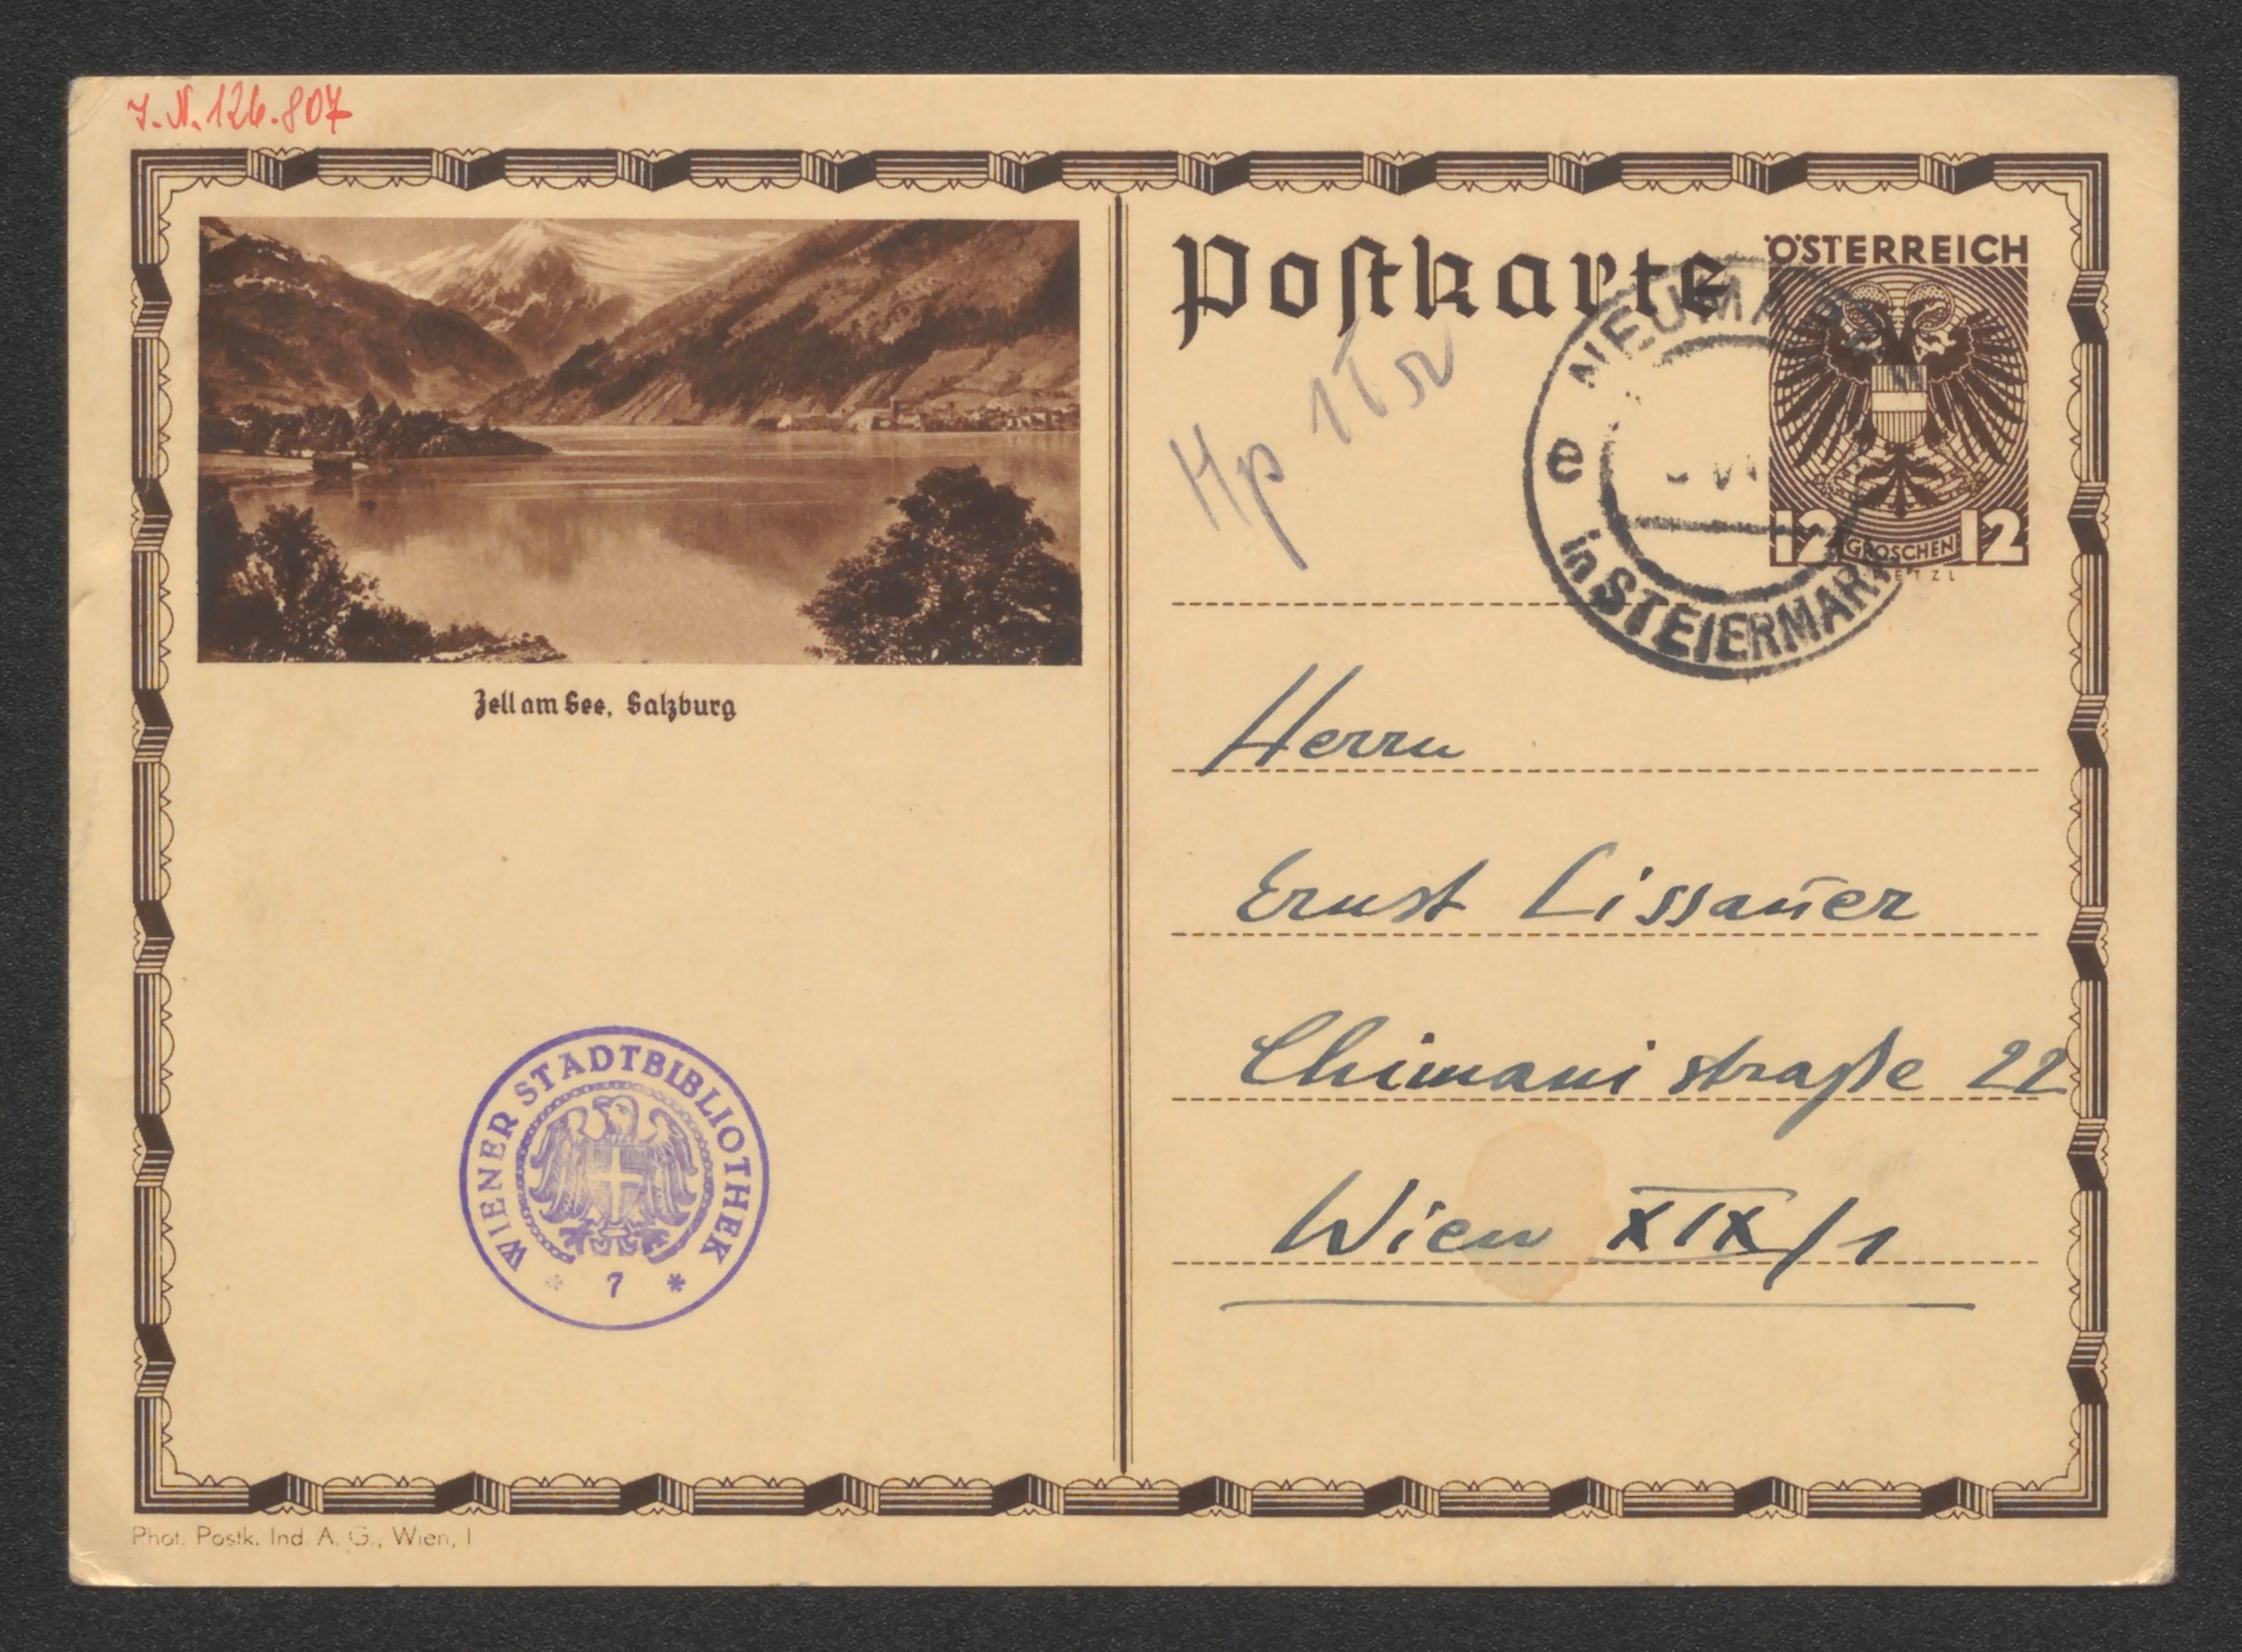 J.N. 126.807
Zell am See, Salzburg
WIENER STADTBIBLIOTHEK
* 7 *
Phot. Postk. Ind. A. G., Wien, I
Postkarte
ÖSTERREICH
12 GROSCHEN 12
NEUMARKT
e
in STEIERMARK
Hp
Herrn
Ernst Lissauer
Chimanistraße 22
Wien XIX/1